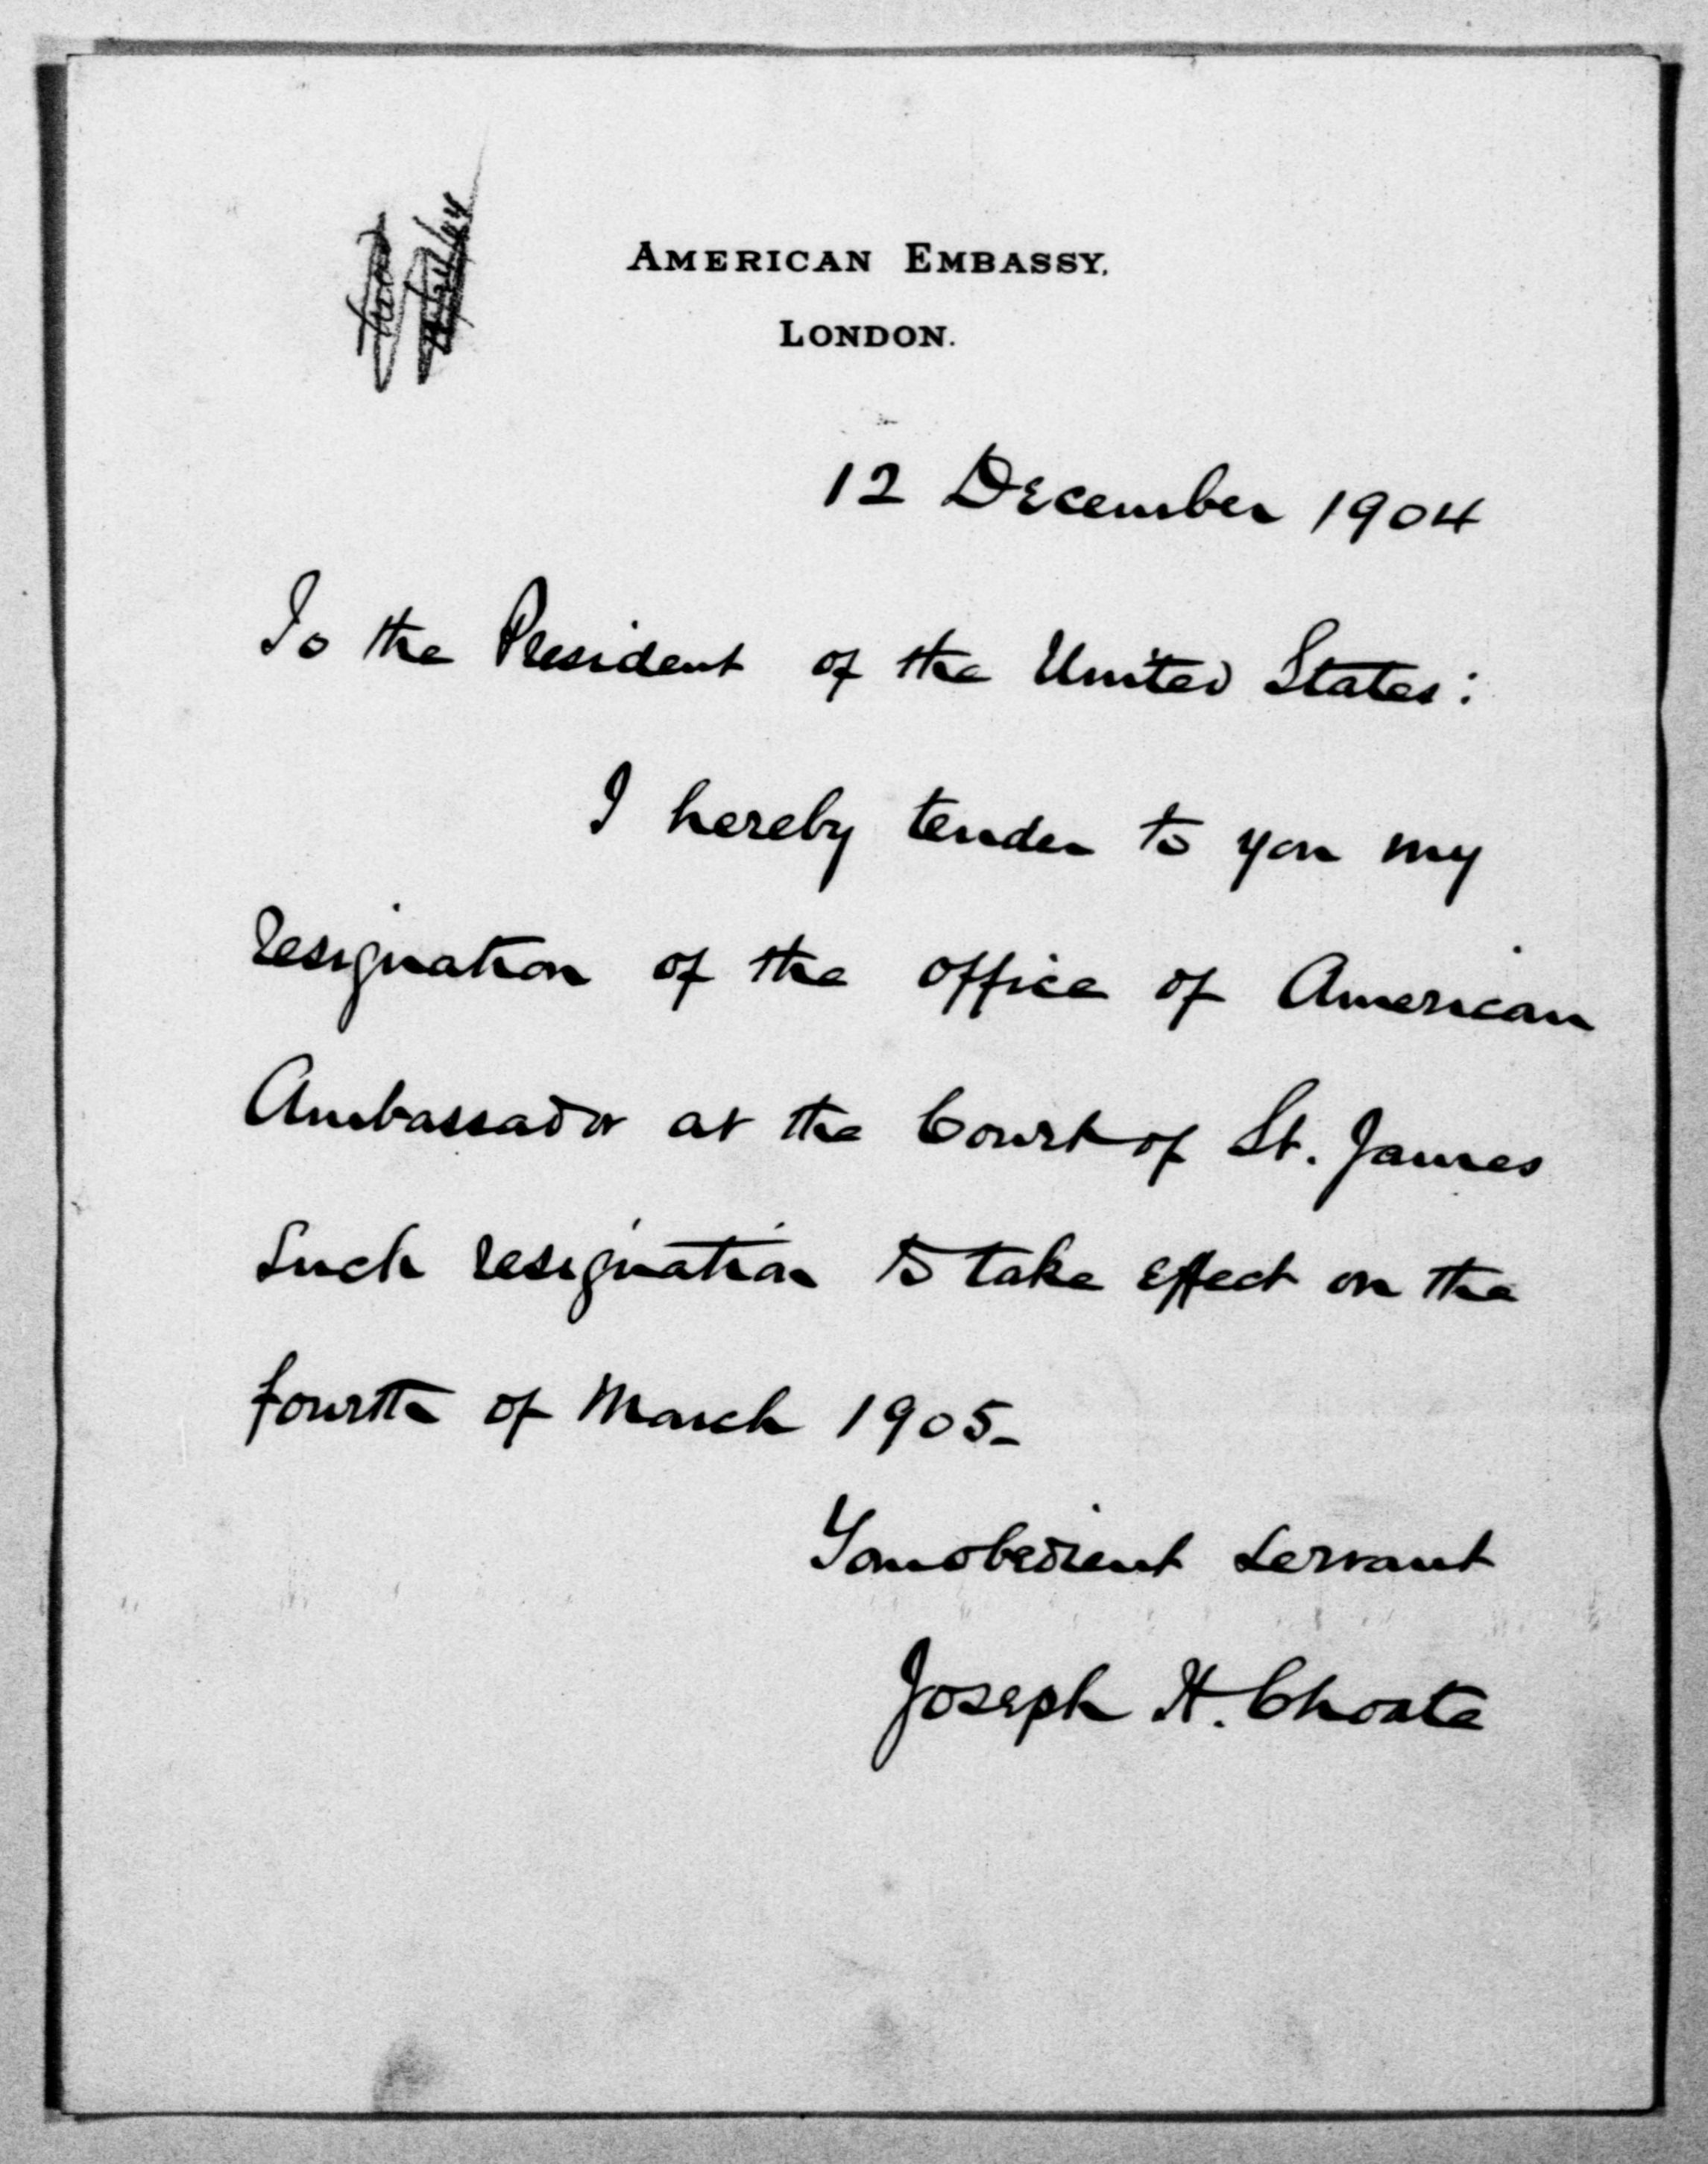 AMERICAN EMBASSY,
LONDON.
12 December 1904
To the President of the United States:
I hereby tender to you my
resignation of the office of American
Ambassador at the Court of St. James
Such resignation to take effect on the
fourth of March 1905_
Your obedient servant
Joseph H. Choate